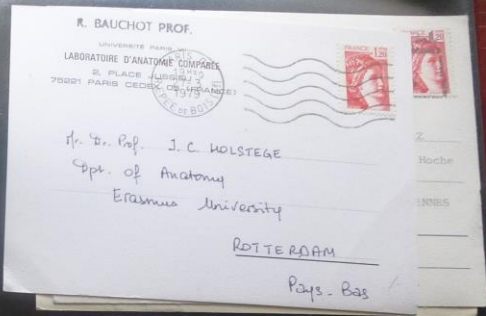 R. BAUCHOT PROF.
UNIVERSITÉ PARIS
LABORATOIRE D'ANATOMIE COMPARÉE
2, PLACE JUSSIEU
75221 PARIS CEDEX 05 (FRANCE)
1979
FRANCE
1,20
Mr. Dr. Prof. J. C. HOLSTEGE
Dpt. of Anatomy
Erasmus University
ROTTERDAM
Pays-Bas
Z
Roche
NNES